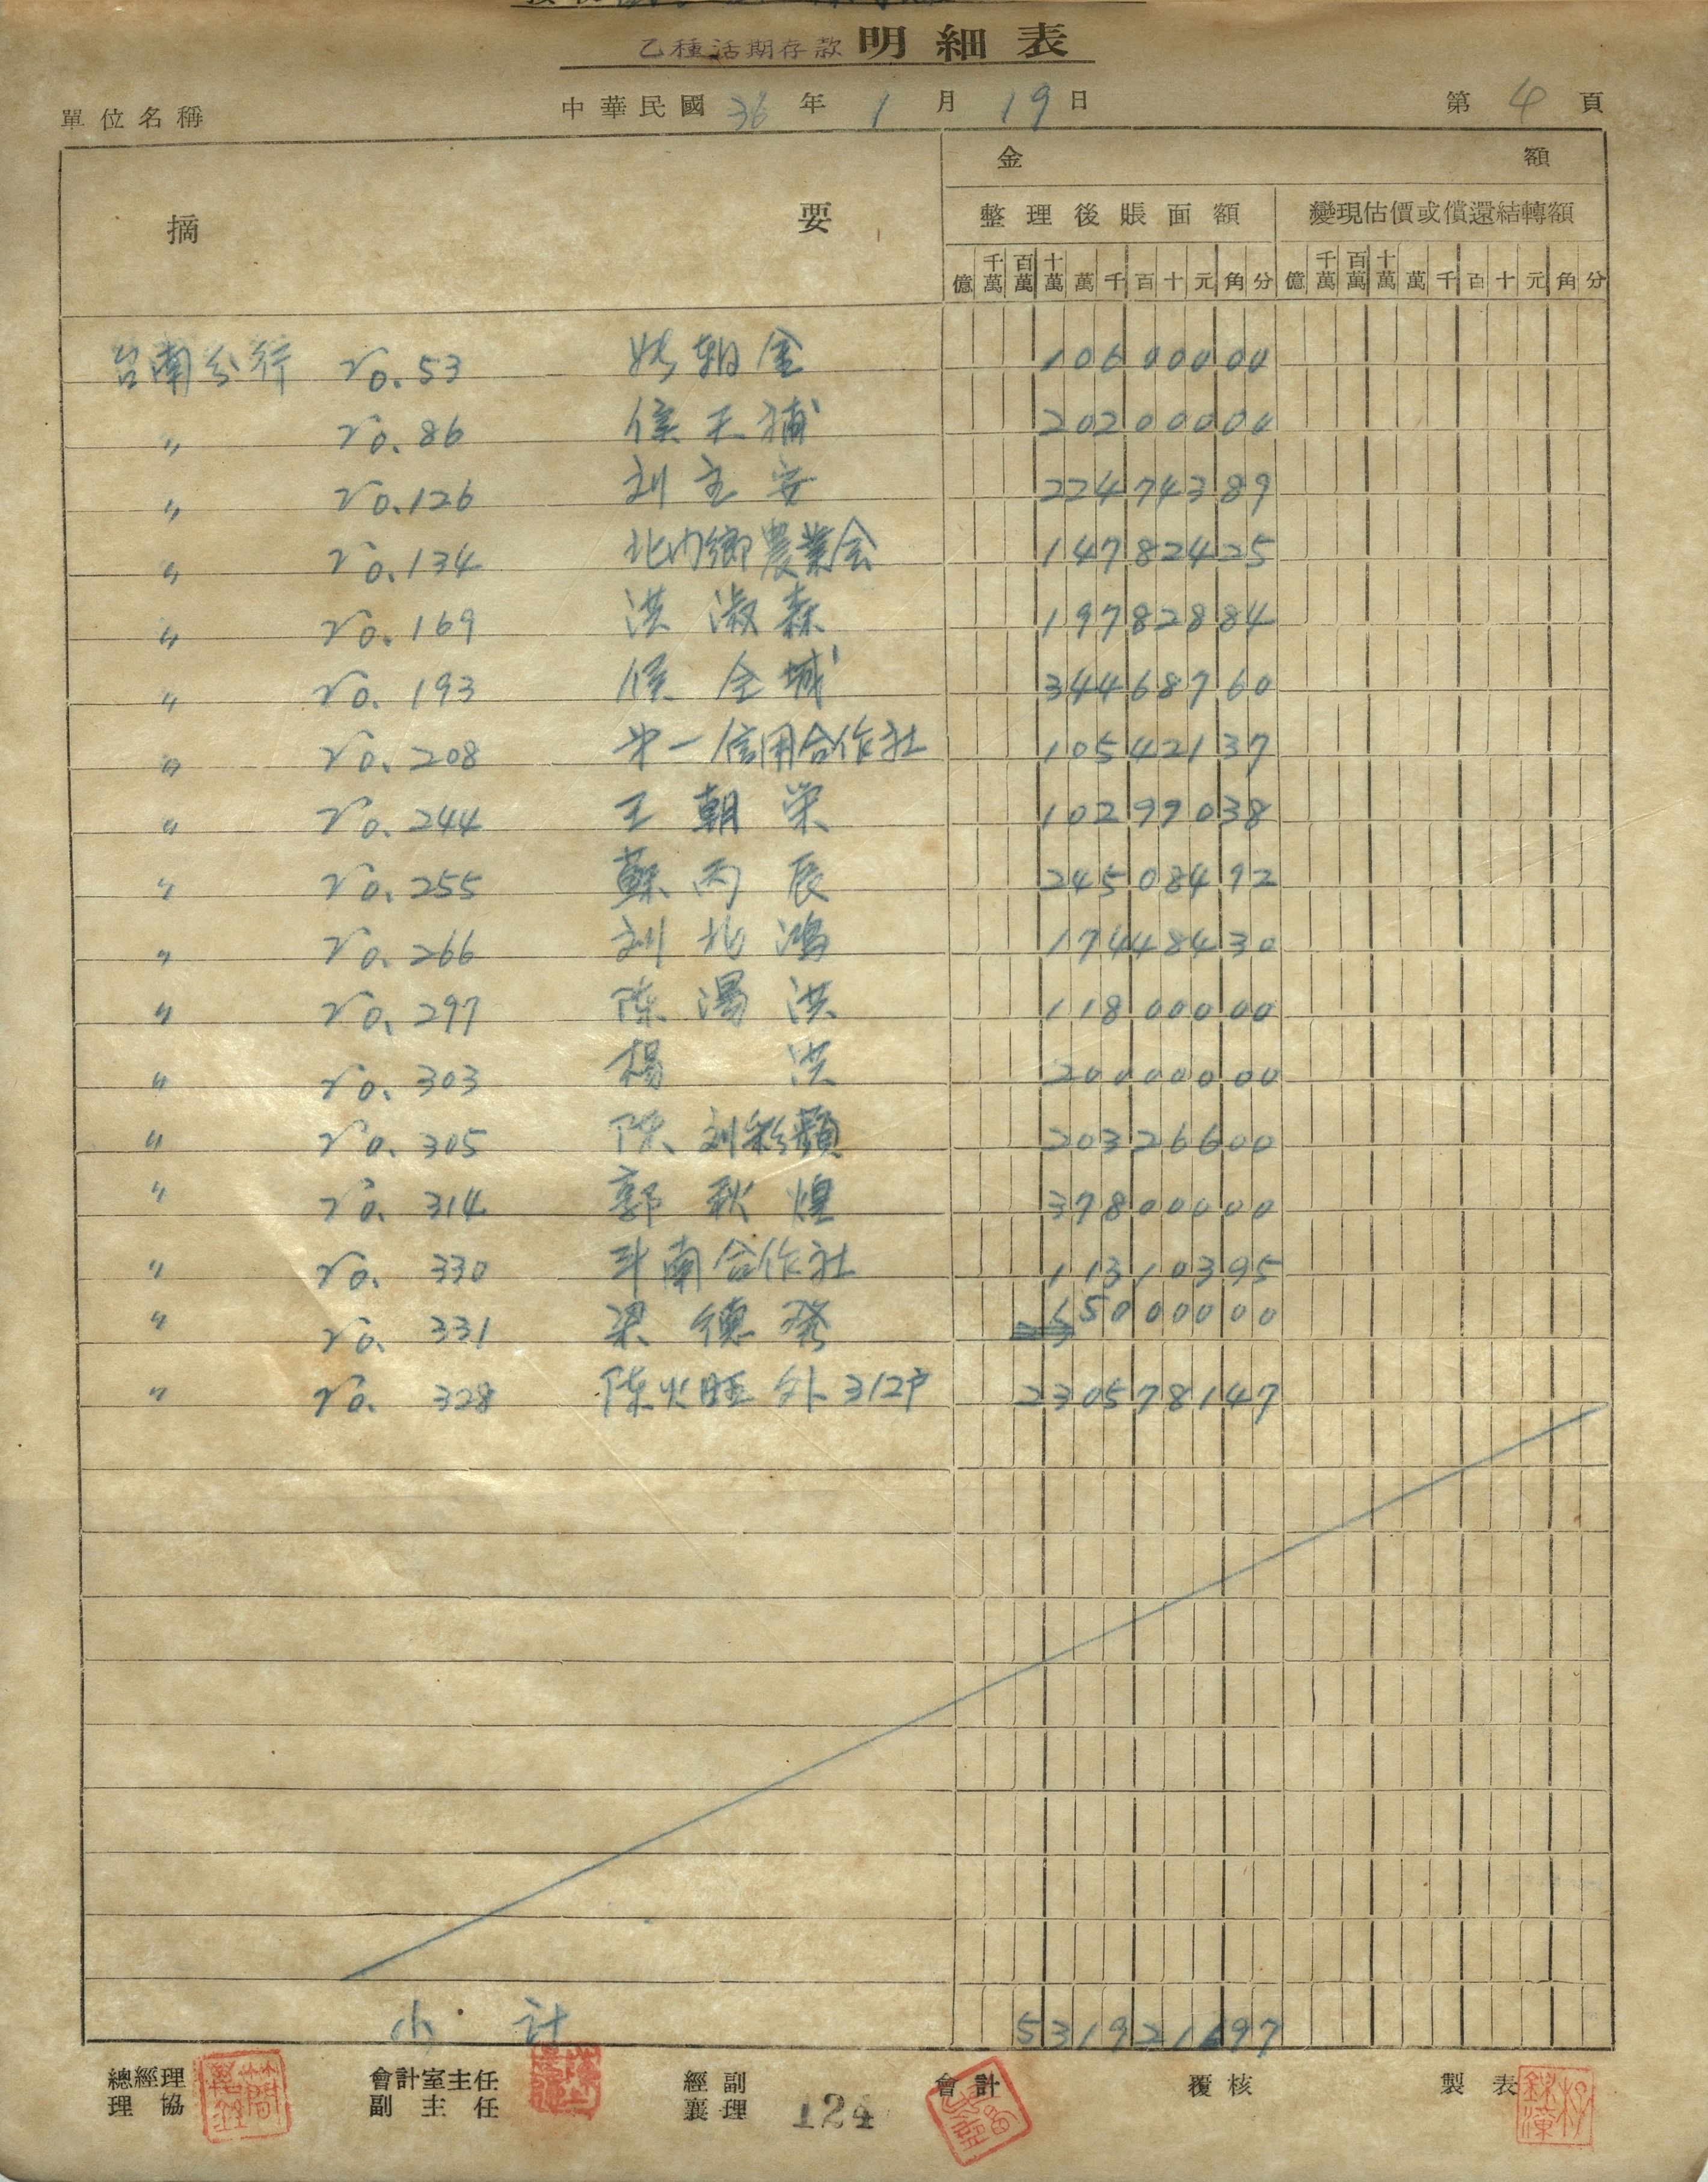 乙種活期存款 明細表
單位名稱 中華民國 36 年 1 月 19 日 第 4 頁
摘 要 金 額
整理後賬面額 變現估價或償還結轉額
億 千萬 百萬 十萬 萬 千 百 十 元 角 分 億 千萬 百萬 十萬 萬 千 百 十 元 角 分
台南分行 No. 53 朝金 10600000
〃 No. 86 侯天補 20200000
〃 No. 126 刘主安 22474389
〃 No. 134 北門鄉農業会 14782425
〃 No. 169 洪淑森 19782884
〃 No. 193 侯全城 34468760
〃 No. 208 第一信用合作社 10542137
〃 No. 244 王朝栄 10299038
〃 No. 255 蘇丙辰 24508492
〃 No. 266 刘北鴻 17448430
〃 No. 297 陈湯洪 11800000
〃 No. 303 楊洪 20000000
〃 No. 305 陳刘彩顏 20326600
〃 No. 314 郭秋煌 37800000
〃 No. 330 斗南合作社 11310395
〃 No. 331 梁德發 15000000
〃 No. 328 陈火旺 外312户 230578147
小計 531921697
總經理 會計室主任 經副 會計 覆核 製表
理協 副主任 襄理 124